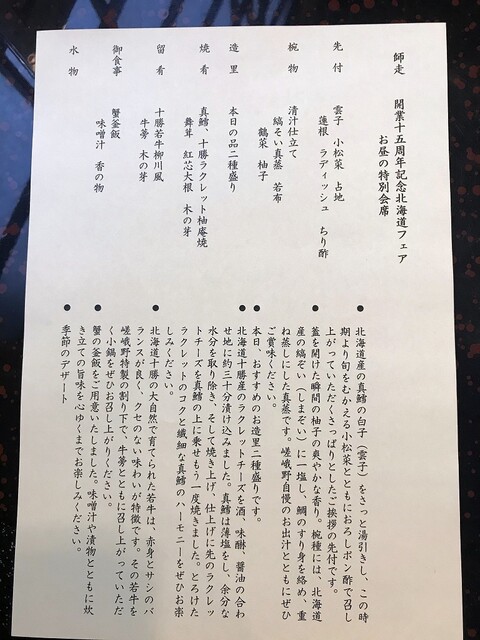 師走　開業十五周年記念北海道フェア
お昼の特別会席
先付　雲子　小松菜　占地
蓮根　ラディッシュ　ちり酢
椀物　清汁仕立て
縞そい真蒸　若布
鶴菜　柚子
造里　本日の品二種盛り
焼肴　真鱈、十勝ラクレット柚庵焼
舞茸　紅芯大根　木の芽
留肴　十勝若牛柳川風
牛蒡　木の芽
御食事　蟹釜飯
味噌汁　香の物
水物
●北海道産の真鱈の白子（雲子）をさっと湯引きし、この時
期より旬をむかえる小松菜とともにおろしポン酢で召し
上がっていただくさっぱりとしたご挨拶の先付です。
●蓋を開けた瞬間の柚子の爽やかな香り。椀種には、北海道
産の縞ぞい（しまぞい）に一塩し、鯛のすり身を絡め、重
ね蒸しにした真蒸です。嵯峨野自慢のお出汁とともにぜひ
ご賞味ください。
●本日、おすすめのお造里二種盛りです。
●北海道十勝産のラクレットチーズを酒、味醂、醤油の合わ
せ地に約三十分漬け込みました。真鱈は薄塩をし、余分な
水分を取り除き、そして焼き上げ、仕上げに先のラクレッ
トチーズを真鱈の上に乗せもう一度焼きました。とろけた
ラクレットのコクと繊細な真鱈のハーモニーをぜひお楽
しみください。
●北海道十勝の大自然で育てられた若牛は、赤身とサシのバ
ランスが良く、クセのない味わいが特徴です。その若牛を
嵯峨野特製の割り下で、牛蒡とともに召し上がっていただ
く小鍋をぜひお召し上がりください。
●蟹の釜飯をご用意いたしました。味噌汁や漬物とともに炊
き立ての旨味を心ゆくまでお楽しみください。
●季節のデザート